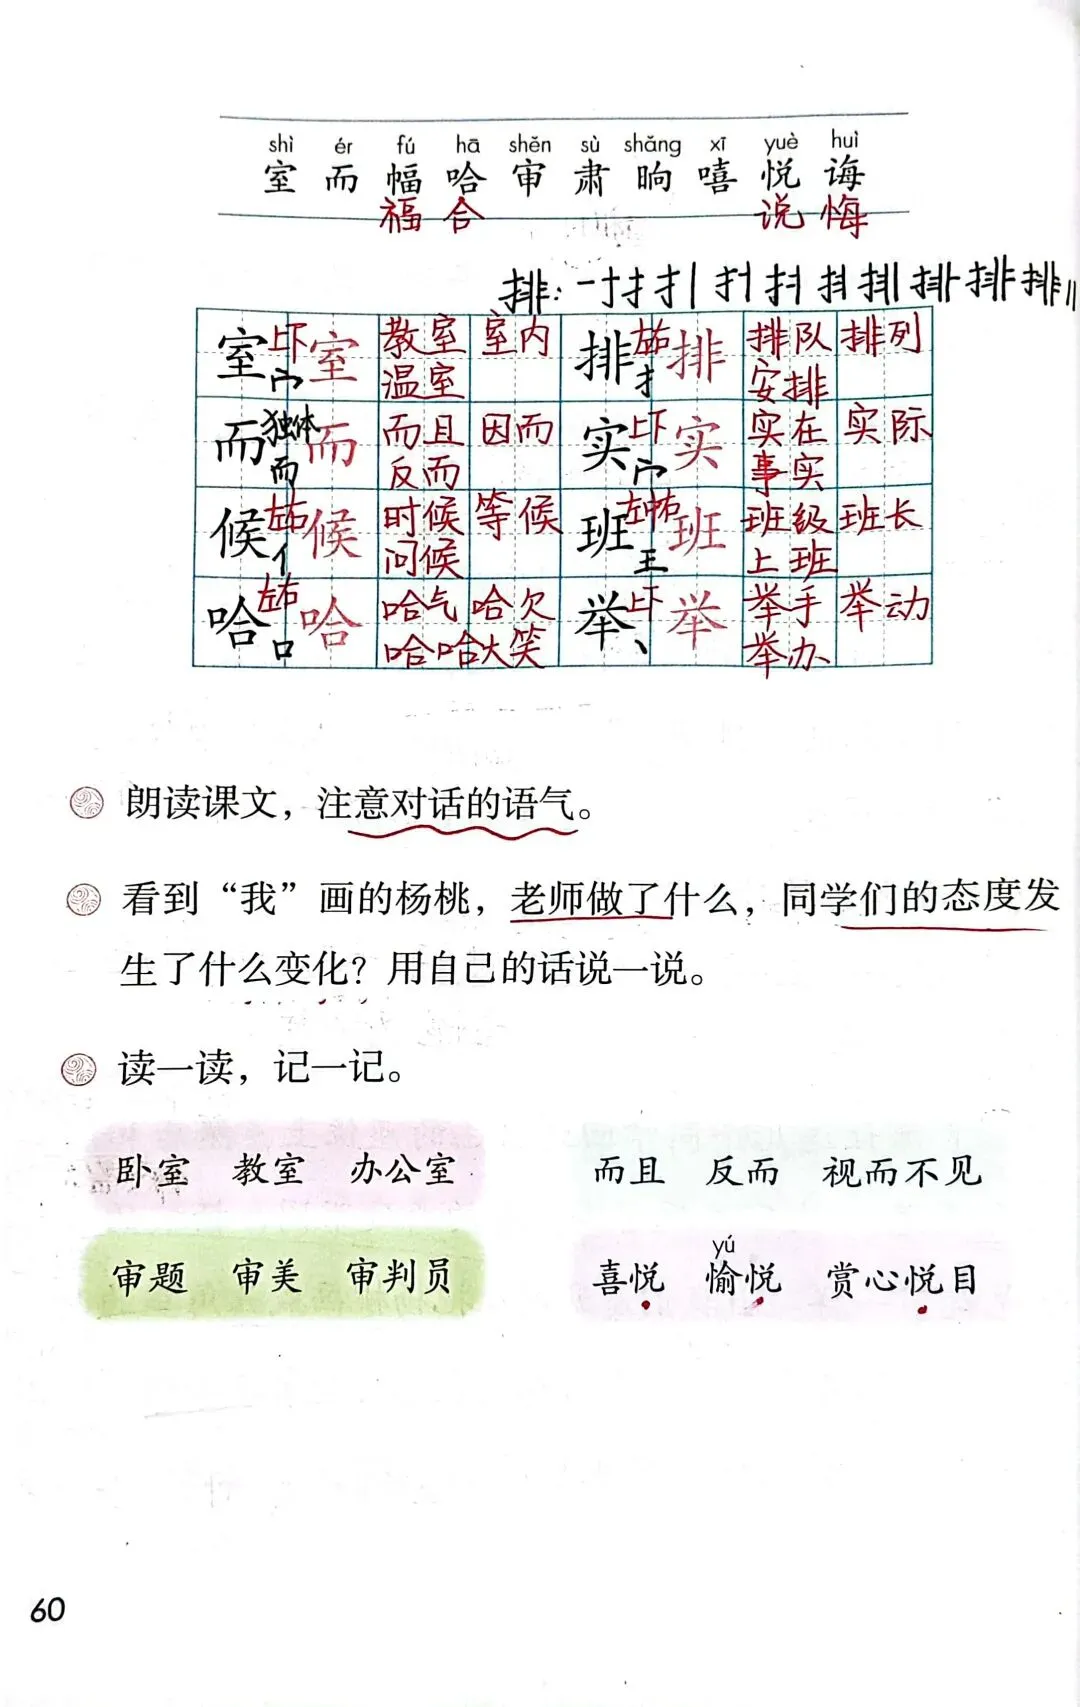 shì ér fú hā shěn sù shǎng xī yuè huì
室 而 幅 哈 审 肃 晌 嘻 悦 诲
福 合 说 悔
排：
室 上下 室 教室 室内 排 左右 排 排队 排列
宀 温室 扌 安排
而 独体 而 而且 因而 实 上下 实 实在 实际
而 反而 宀 事实
候 左右 候 时候 等候 班 左中右 班 班级 班长
亻 问候 王 上班
哈 左右 哈 哈气 哈欠 举 上下 举 举手 举动
口 哈哈大笑 丶 举办
朗读课文，注意对话的语气。
看到“我”画的杨桃，老师做了什么，同学们的态度发
生了什么变化？用自己的话说一说。
读一读，记一记。
卧室 教室 办公室 而且 反而 视而不见
yú
审题 审美 审判员 喜悦 愉悦 赏心悦目
60